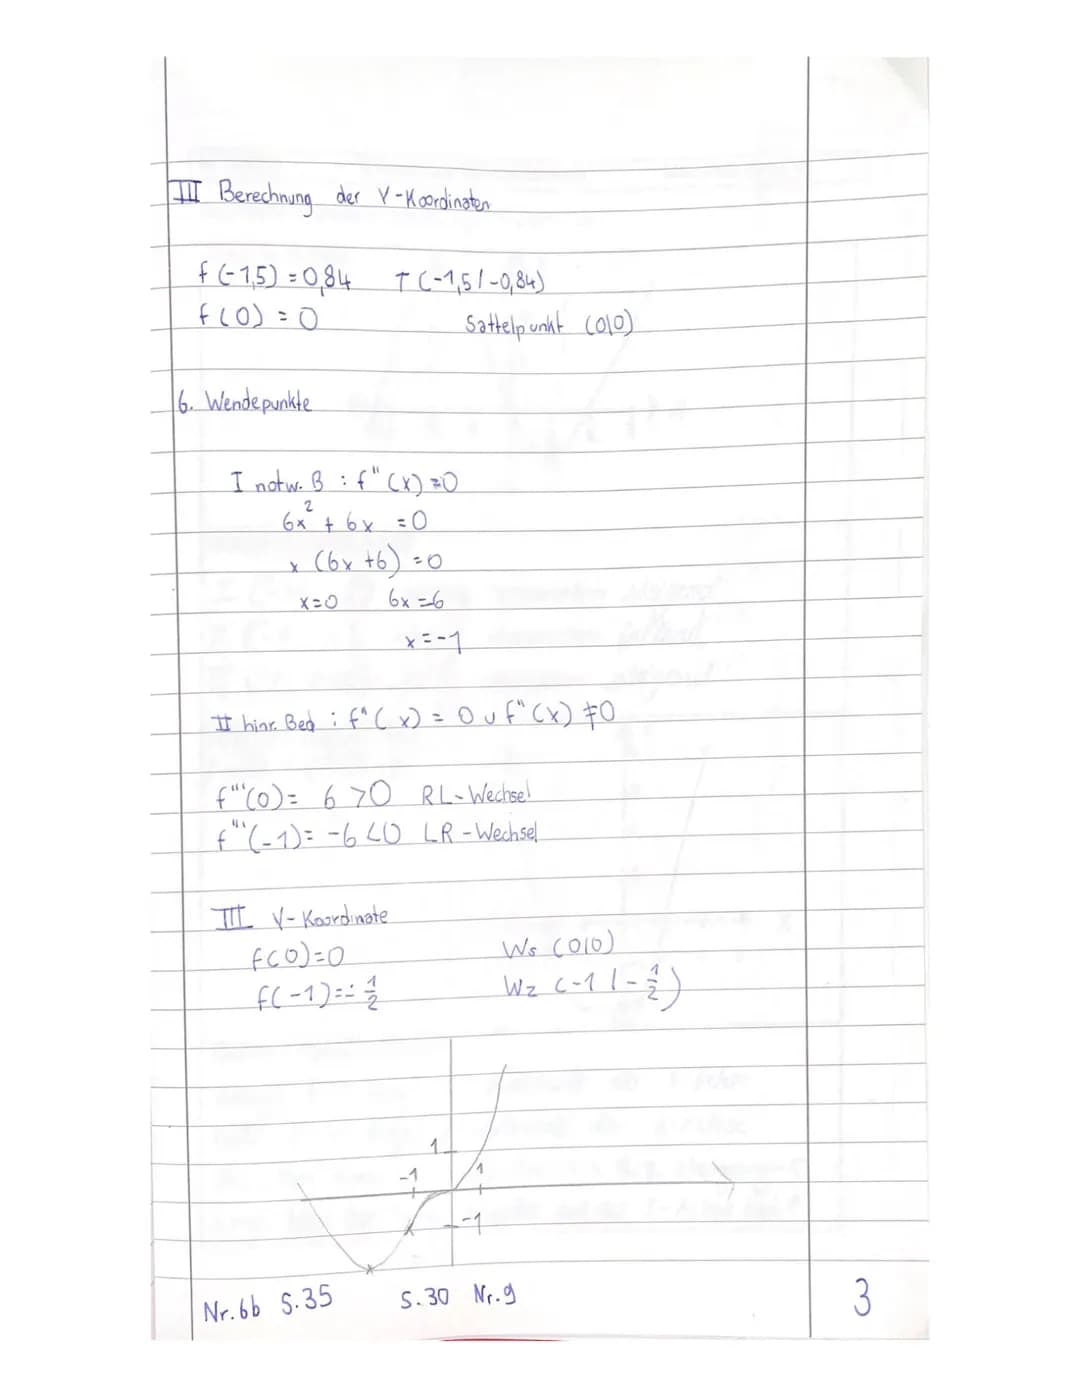 III Berechnung der Y-Koordinaten
f(-1,5) = 0,84 T(-1,5/-0,84)
f(0) = 0 Sattelpunkt (0|0)
6. Wendepunkte
I notw. B : f"(x) = 0
6x² + 6x = 0
x (6x +6) = 0
x=0 6x =-6
x = -1
II hinr. Bed : f"(x) = 0 ∪ f"'(x) ≠0
f'''(0)= 6 >0 RL-Wechsel
f'''(-1)= -6 <0 LR-Wechsel
III Y-Koordinate
f(0)=0 Ws (0|0)
f(-1)=-1/2 W2 (-1 | -1/2)
1
-1 1
-1
Nr.6b S.35 S.30 Nr.9
3